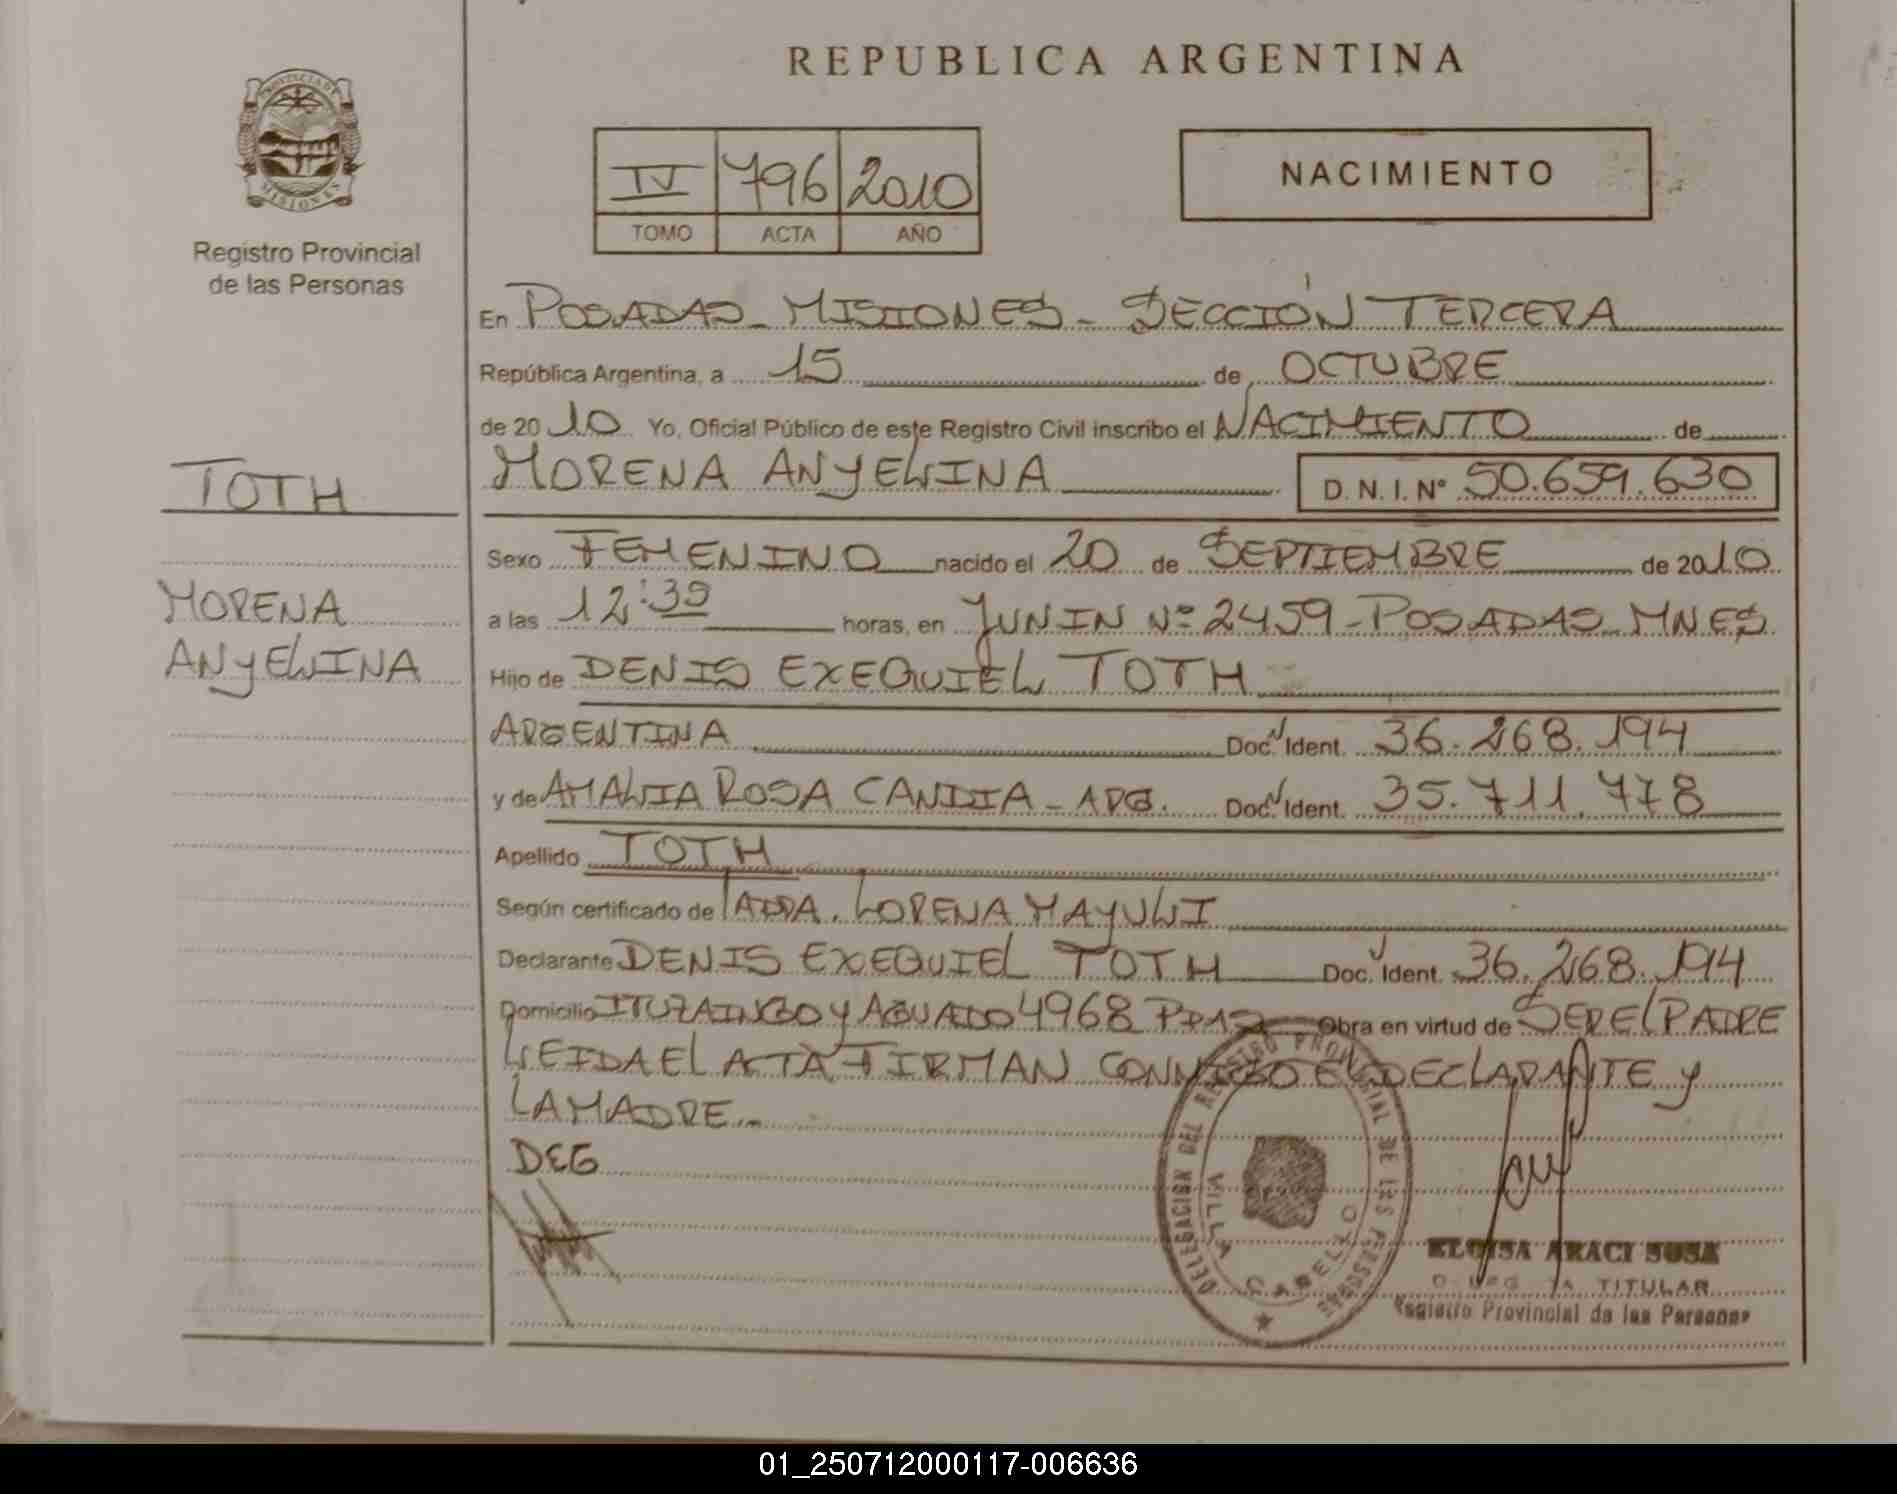 REPUBLICA ARGENTINA
PROVINCIA DE
MISIONES
Registro Provincial
de las Personas
IV 796 2010
TOMO ACTA AÑO
NACIMIENTO
En POSADAS - MISIONES - SECCIÓN TERCERA
República Argentina, a 15 de OCTUBRE
de 2010 Yo, Oficial Público de este Registro Civil inscribo el NACIMIENTO de
MORENA ANYELINA D.N.I. Nº 50.659.630
TOTH
MORENA
ANYELINA
Sexo FEMENINO nacido el 20 de SEPTIEMBRE de 2010
a las 12:39 horas, en JUNIN Nº 2459 - POSADAS - MNES
Hijo de DENIS EXEQUIEL TOTH
ARGENTINA Doc. Ident. 36.268.194
y de AMALIA ROSA CANDIA - ARG. Doc. Ident. 35.711.778
Apellido TOTH
Según certificado de LORENA MAYULI
Declarante DENIS EXEQUIEL TOTH Doc. Ident. 36.268.194
Domicilio ITUZAINGO Y AGUADO 4968 PDAS Obra en virtud de SER EL PADRE
LEIDA EL ATA FIRMAN CONMIGO EL DECLARANTE Y
LA MADRE..
DEG
DELEGACION DEL REGISTRO PROVINCIAL DE LAS PERSONAS
VILLA CABELLO
ELOISA ARACI SOSA
TITULAR
Registro Provincial de las Personas
01_250712000117-006636